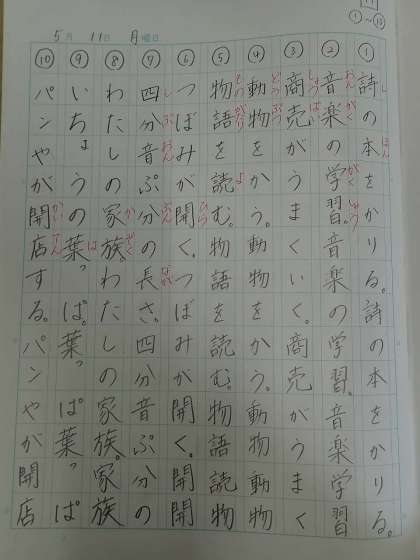 5月 11日 月曜日
① 詩の本をかりる。詩の本をかりる。
② 音楽の学習。音楽の学習。音楽学習
③ 商売がうまくいく。商売がうまく
④ 動物をかう。動物をかう。動物動物
⑤ 物語を読む。物語を読む。物語読物
⑥ つぼみが開く。つぼみが開く。開開
⑦ 四分音ぷ分の長さ。四分音ぷ分の
⑧ わたしの家族。わたしの家族。家族
⑨ いちょうの葉っぱ。葉っぱ葉っぱ
⑩ パンやが開店する。パンやが開店